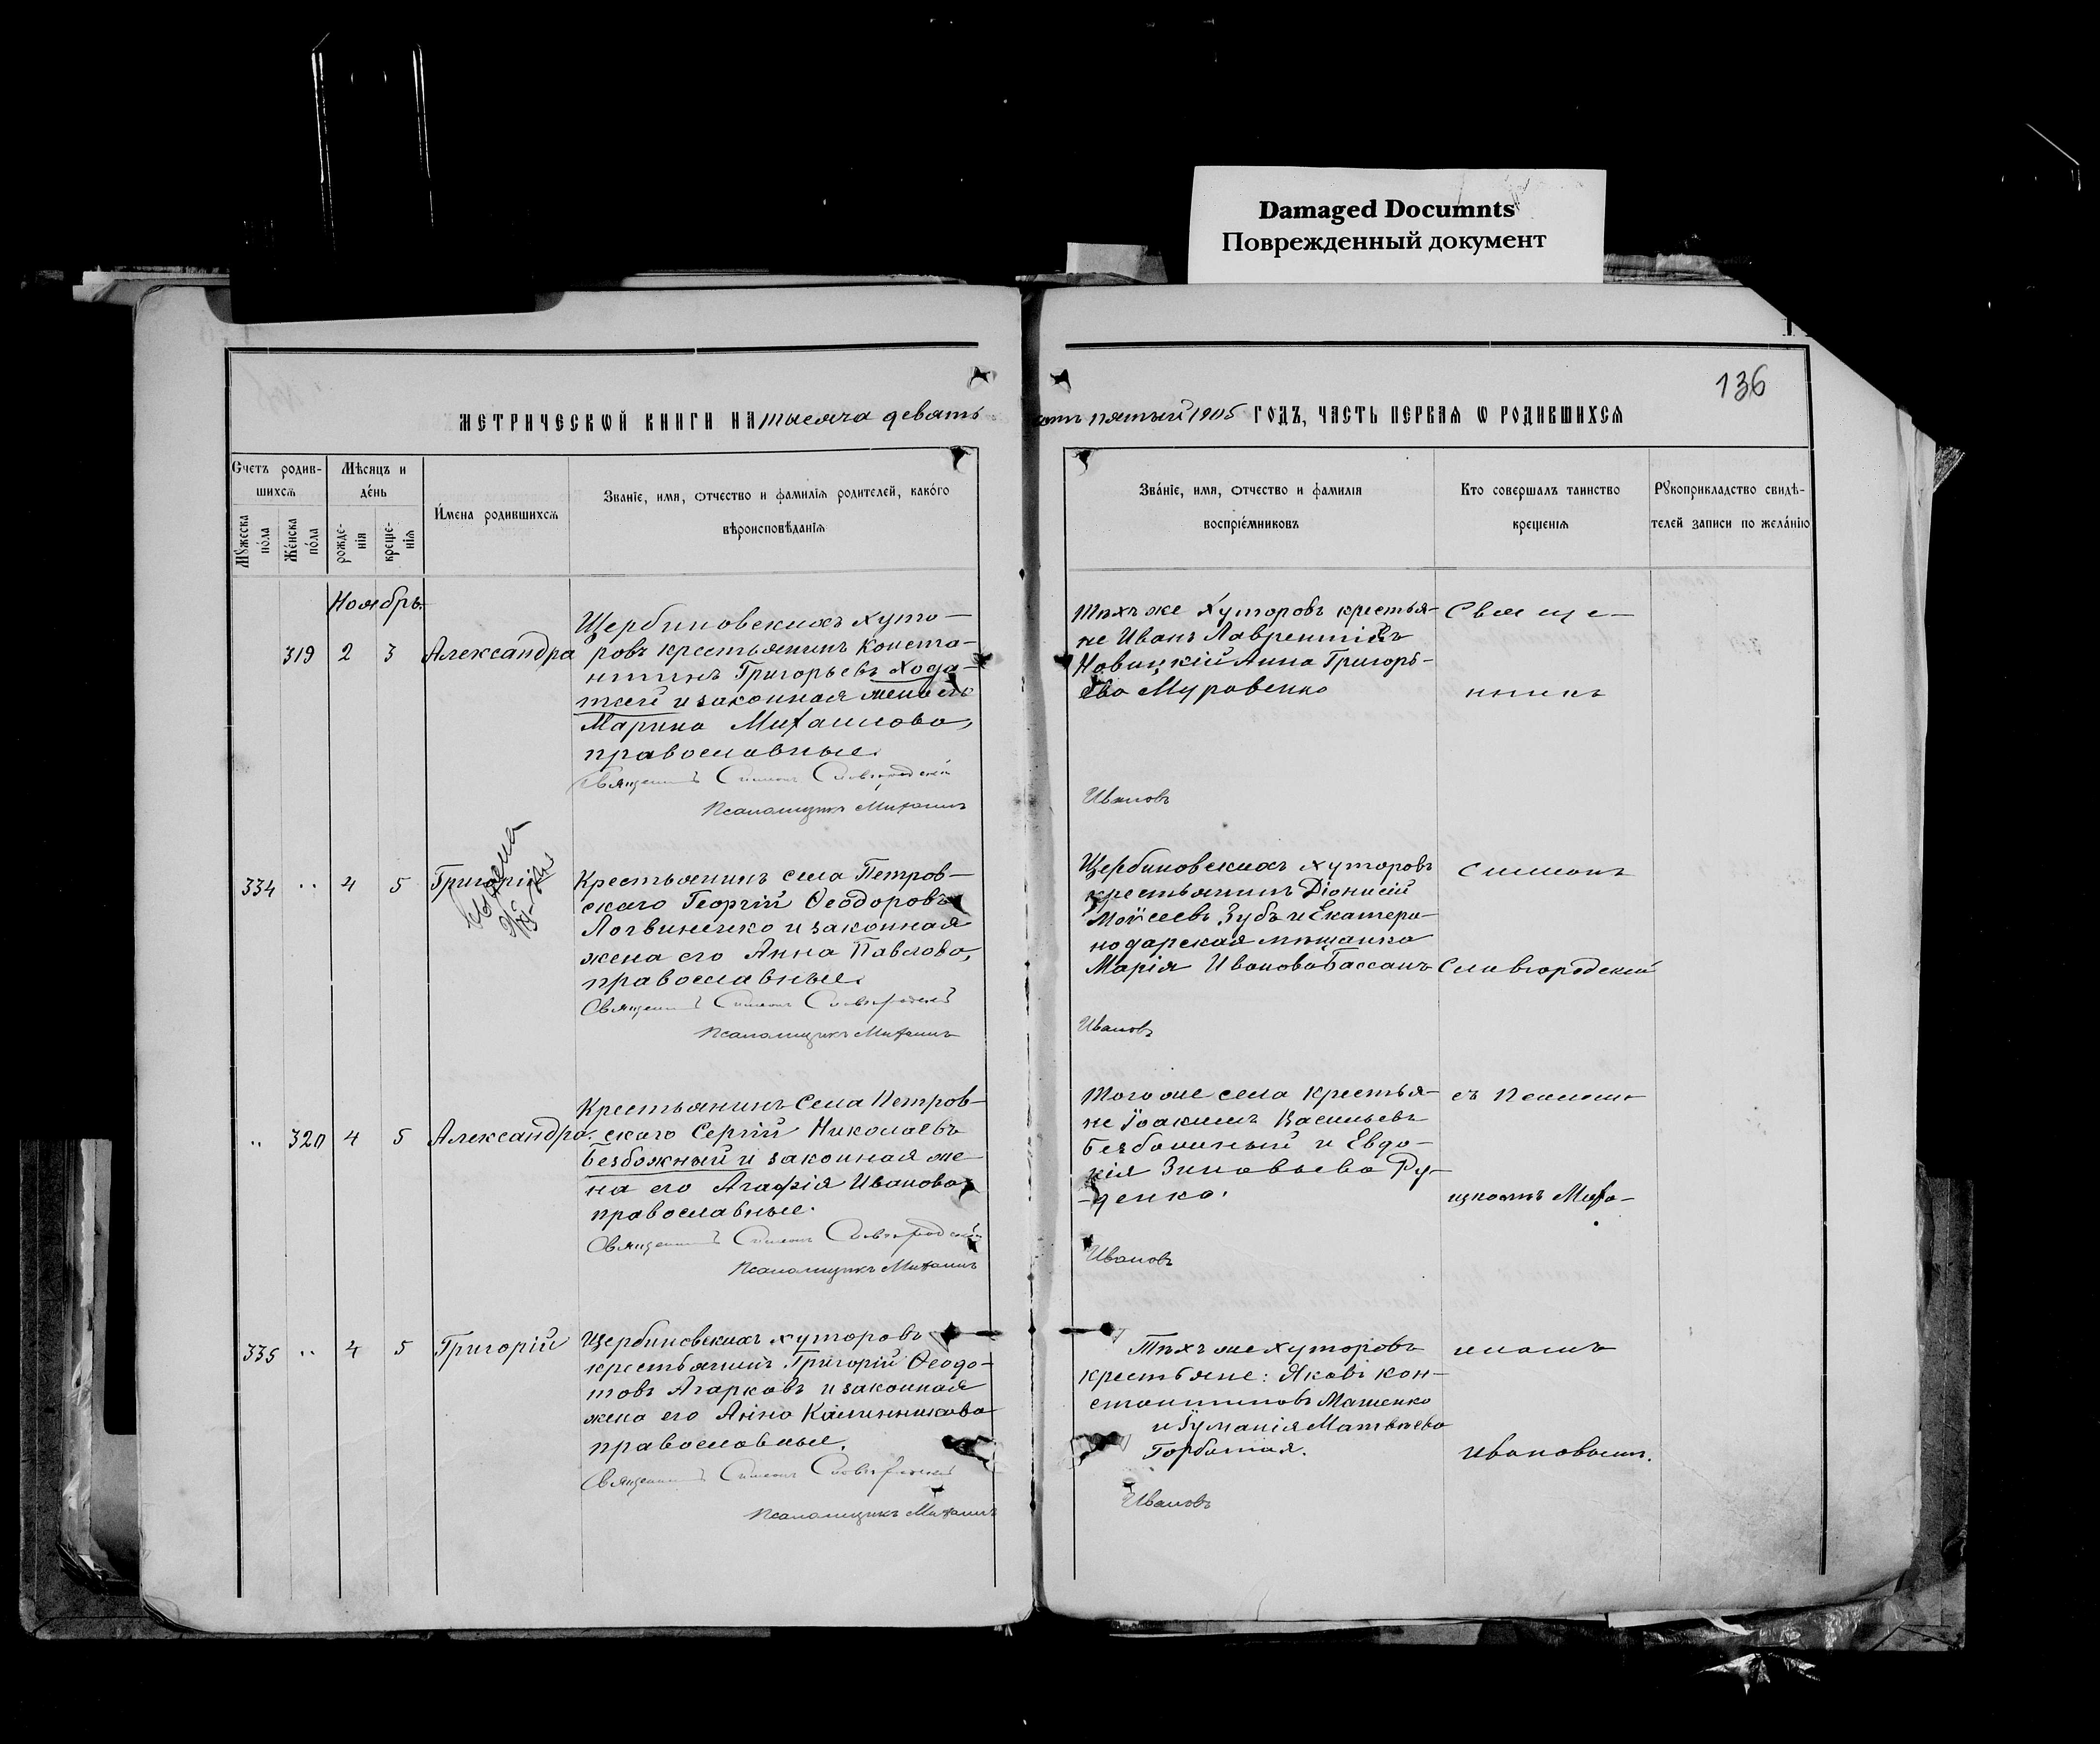 Damaged Documnts
Поврежденный документ
136
МЕТРИЧЕСКѠЙ КНИГИ НА тысяча девять
сотъ пятый 1905 ГОДЪ, ЧАСТЬ ПЕРВАЯ Ѡ РОДИВШИХСЯ
Счетъ родив-
шихся
Мужеска пола
Женска пола
Мѣсяцъ и
день
рожде-
нія
креще-
нія
Имена родившихся
Званіе, имя, отчество и фамилія родителей, какого
вѣроисповѣданія
Званіе, имя, отчество и фамилія
воспріемниковъ
Кто совершалъ таинство
крещенія
Рукоприкладство свидѣ-
телей записи по желанію
Ноябрь
319 2 3 Александра
Щербиновскихъ хуто-
ровъ крестьянинъ Конста-
нтинъ Григорьевъ Хода-
тсей и законная жена его
Марина Михаилова,
православные.
Священникъ Симеонъ Славгородскій
Псаломщикъ Михаилъ
Тѣхъ же хуторовъ крестья-
не Иванъ Лаврентіевъ
Новицкій Анна Григорь-
ева Муравенко
Иванов
Свяще-
нникъ
334 .. 4 5 Григорій
Крестьянинъ села Петров-
скаго Георгій Ѳеодоровъ
Логвиненко и законная
жена его Анна Павлова,
православные.
Священникъ Симеонъ Славгородскій
Псаломщикъ Михаилъ
Щербиновскихъ хуторовъ
крестьянинъ Діонисій
Моѵсеевъ Зубъ и Екатери-
нодарская мѣщанка
Марія Иванова Бассанъ
Иванов
Симеонъ
Славгородскій
.. 320 4 5 Александра.
Крестьянинъ села Петров-
скаго Сергій Николаевъ
Безбожный и законная же
на его Агафія Иванова
православные.
Священникъ Симеонъ Славгородскій
Псаломщикъ Михаилъ
Того же села крестья-
не Іоакимъ Васильевъ
Безбожный и Евдо-
кія Зиновьева Ру-
-денко.
Иванов
съ Псалом-
щикомъ Миха-
335 .. 4 5 Григорій
Щербиновскихъ хуторовъ
крестьянинъ Григорій Ѳеодо-
товъ Агарковъ и законная
жена его Анна Калинникова
православные.
Священникъ Симеонъ Славгородскій
Псаломщикъ Михаилъ
Тѣхъ же хуторовъ
крестьяне: Яковъ Кон-
стантиновъ Машенко
и Іуліанія Матвѣева
Горбатая.
Иванов
иломъ
Ивановымъ.